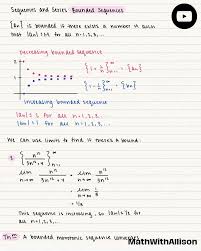 Sequences and Series: Bounded Sequences
{an} is bounded if there exists a number M such
that |an| ≤ M for all n = 1, 2, 3, ...
Decreasing bounded sequence
2
1
{1 + 1/n} n=1 = {an}
Increasing bounded sequence
|an| ≤ for all n = 1, 2, 3, ...
|an| ≤ for all n = 1, 2, 3, ...
We can use limits to find if there's a bound:
{n³ / 3n³ + 4} n=1
lim n³ / 3n³ + 4 = lim n³ / 3n³
n→∞ n→∞
= lim 1/3
n→∞
= 1/3
This sequence is increasing, so |an| ≤ 1/3 for
all n = 1, 2, 3, ...
Thm: A bounded monotonic sequence converges
MathWithAllison